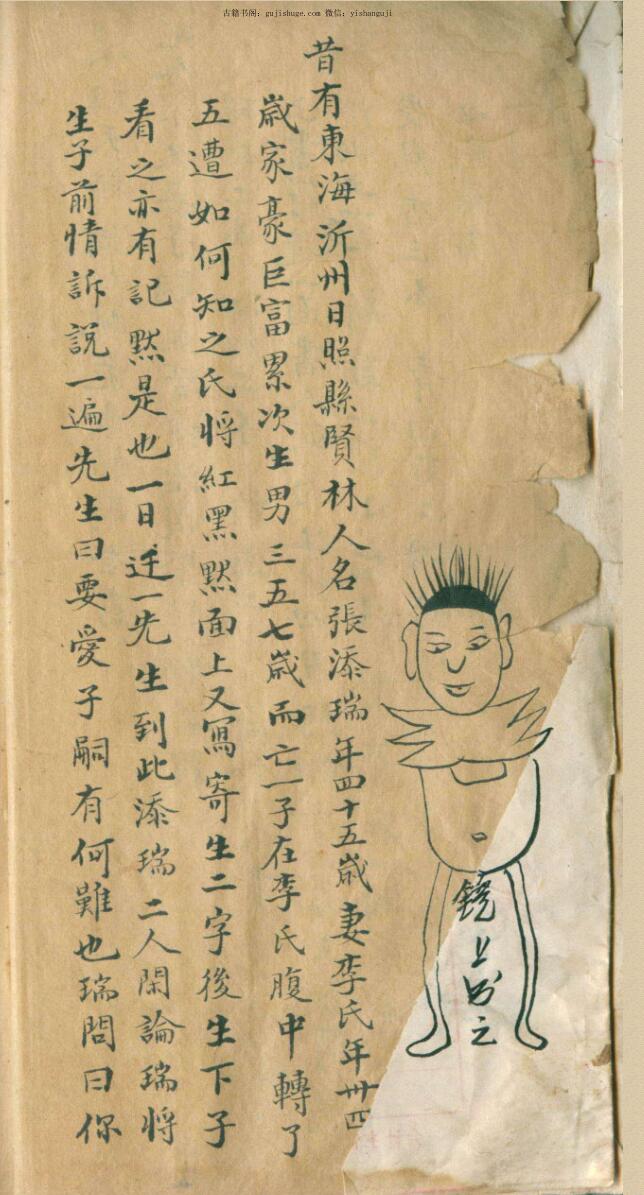 古籍书阁：gujishuge.com 微信：yishanguji
昔有東海沂州日照縣賢林人名張添瑞年四十五歲妻李氏年卅四
歲家豪巨富累次生男三五七歲而亡一子在李氏腹中轉了
五遭如何知之氏將紅黑默面上又寫寄生二字後生下子
看之亦有記默是也一日迁一先生到此添瑞二人閑論瑞將
生子前情訴說一遍先生曰要愛子嗣有何難也瑞問曰你